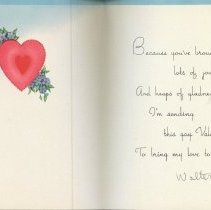 Because you've brou
lots of jo
And heaps of gladne
I'm sending
this gay Val
To bring my love to
Walt